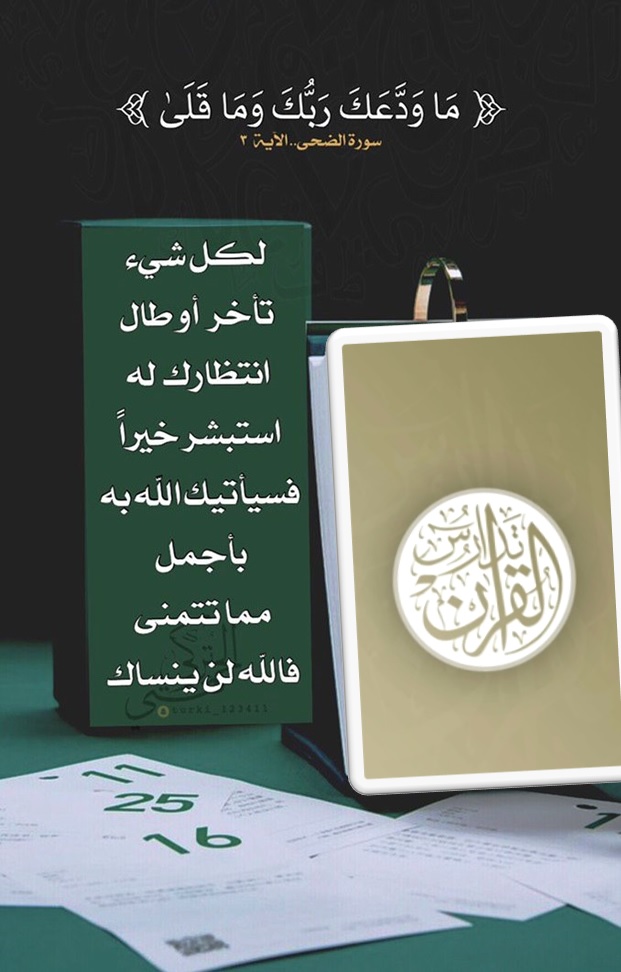 ﴿ مَا وَدَّعَكَ رَبُّكَ وَمَا قَلَىٰ ﴾
سورة الضحى..الآية ٣
لكل شيء
تأخر أو طال
انتظارك له
استبشر خيراً
فسيأتيك الله به
بأجمل
مما تتمنى
فالله لن ينساك
turki_123411
تَدَارُسُ
القرآن
11
25
16